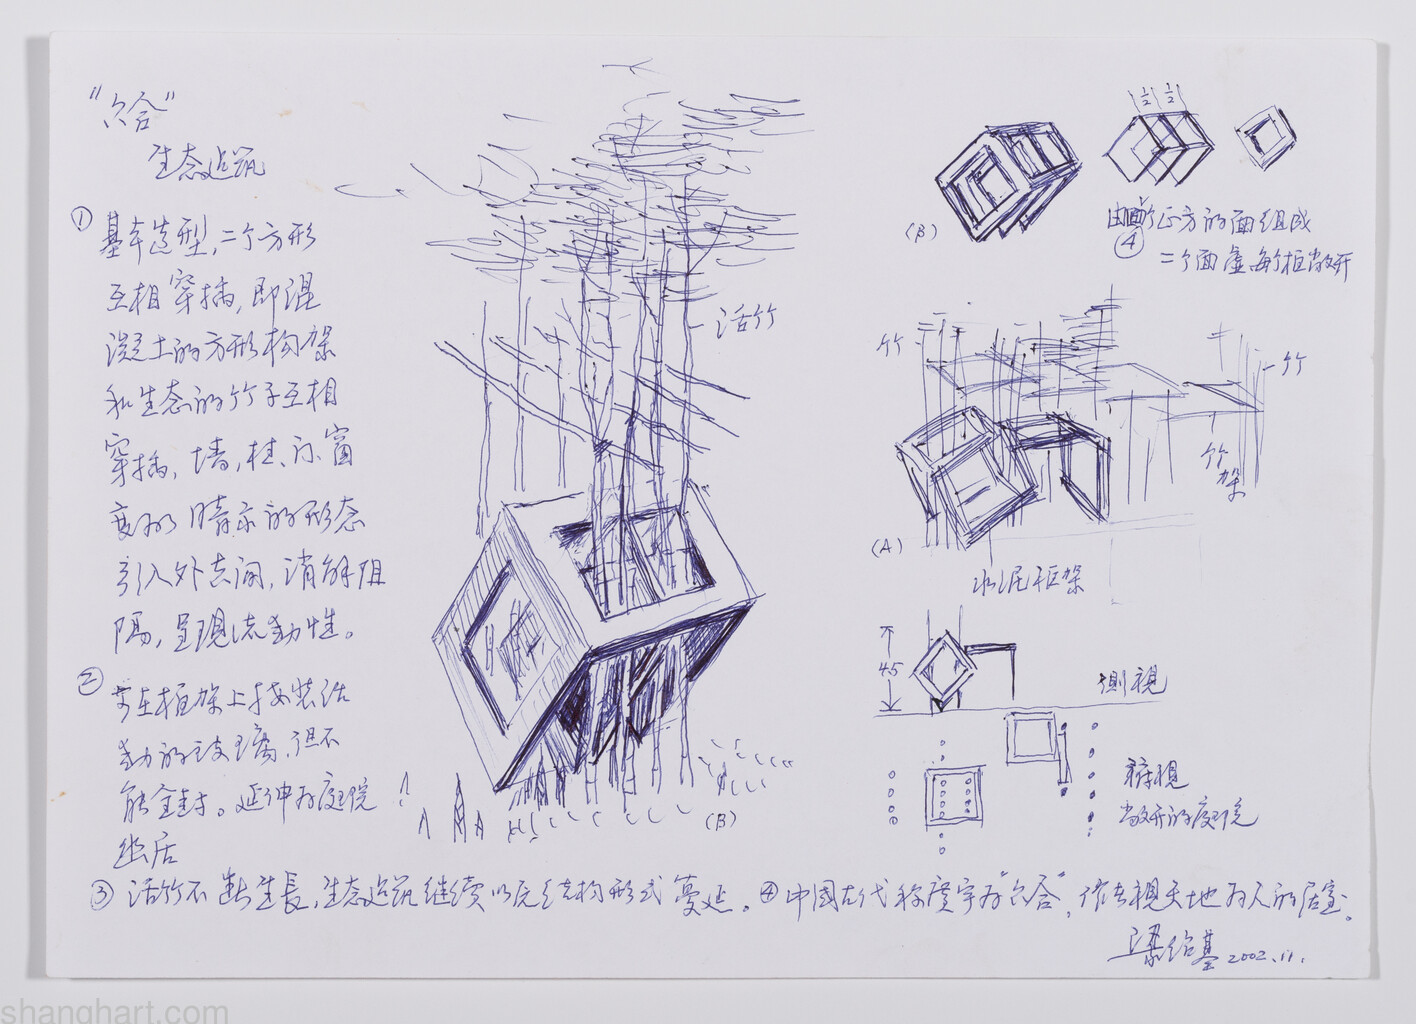 "六合"
生态边筑
① 基本造型,二个方形
互相穿插,即混
凝土的方形构架
和生态的竹子互相
穿插,墙,柱、门、窗
变为暗示的形态
引入外空间,消解阻
隔,呈现流动性。
② 可在框架上按装活
动的玻璃,但不
能全封。延伸为庭院
幽居
③ 活竹不断生長,生态边筑继续以反结构形式蔓延。④ 中國古代称寰宇为"六合",作者視天地为人的居室。
梁绍基 2002.11.
活竹
(B)
(B)
1/2 1/2
由④个正方的面组成
二个面虚,每个框敞开
竹
竹
竹架
(A)
水泥框架
45
侧視
俯視
敞开的庭院
shanghart.com